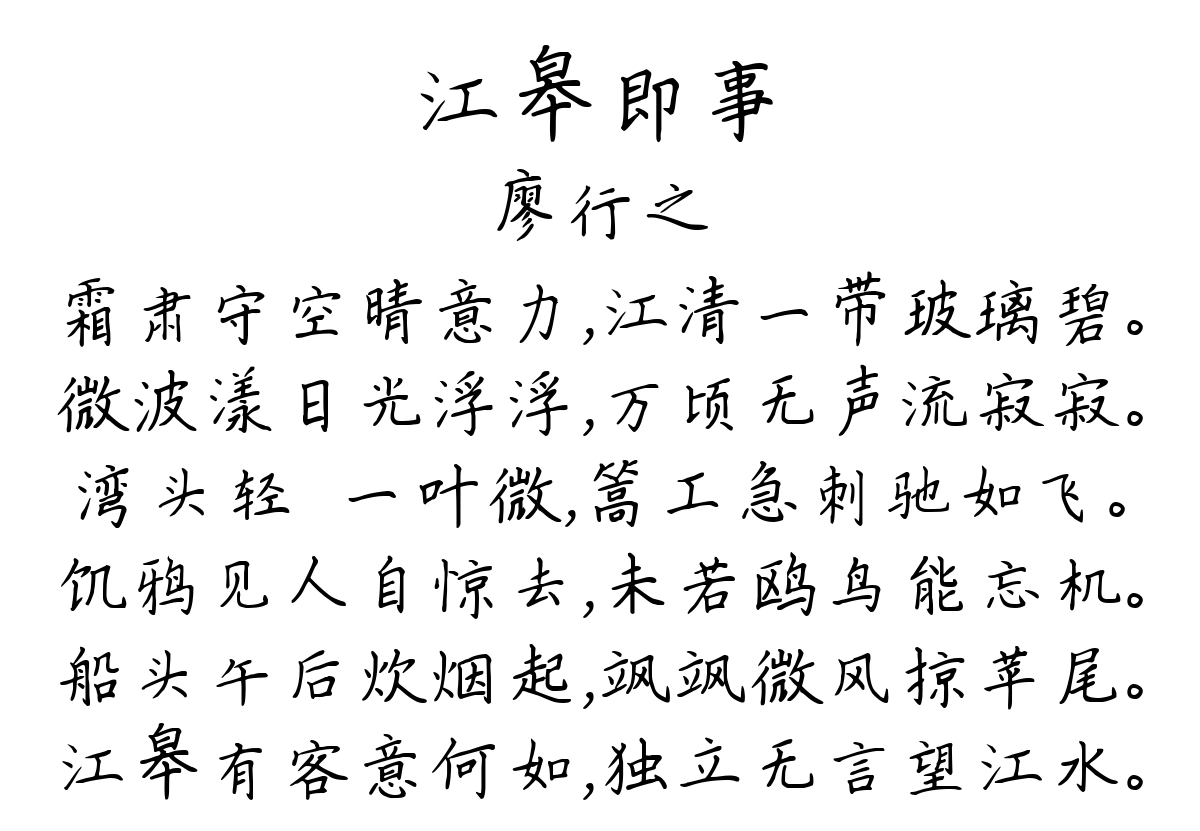 江皋即事
廖行之
霜肃守空晴意力,江清一带玻璃碧。
微波漾日光浮浮,万顷无声流寂寂。
湾头轻 一叶微,篙工急刺驰如飞。
饥鸦见人自惊去,未若鸥鸟能忘机。
船头午后炊烟起,飒飒微风掠苹尾。
江皋有客意何如,独立无言望江水。